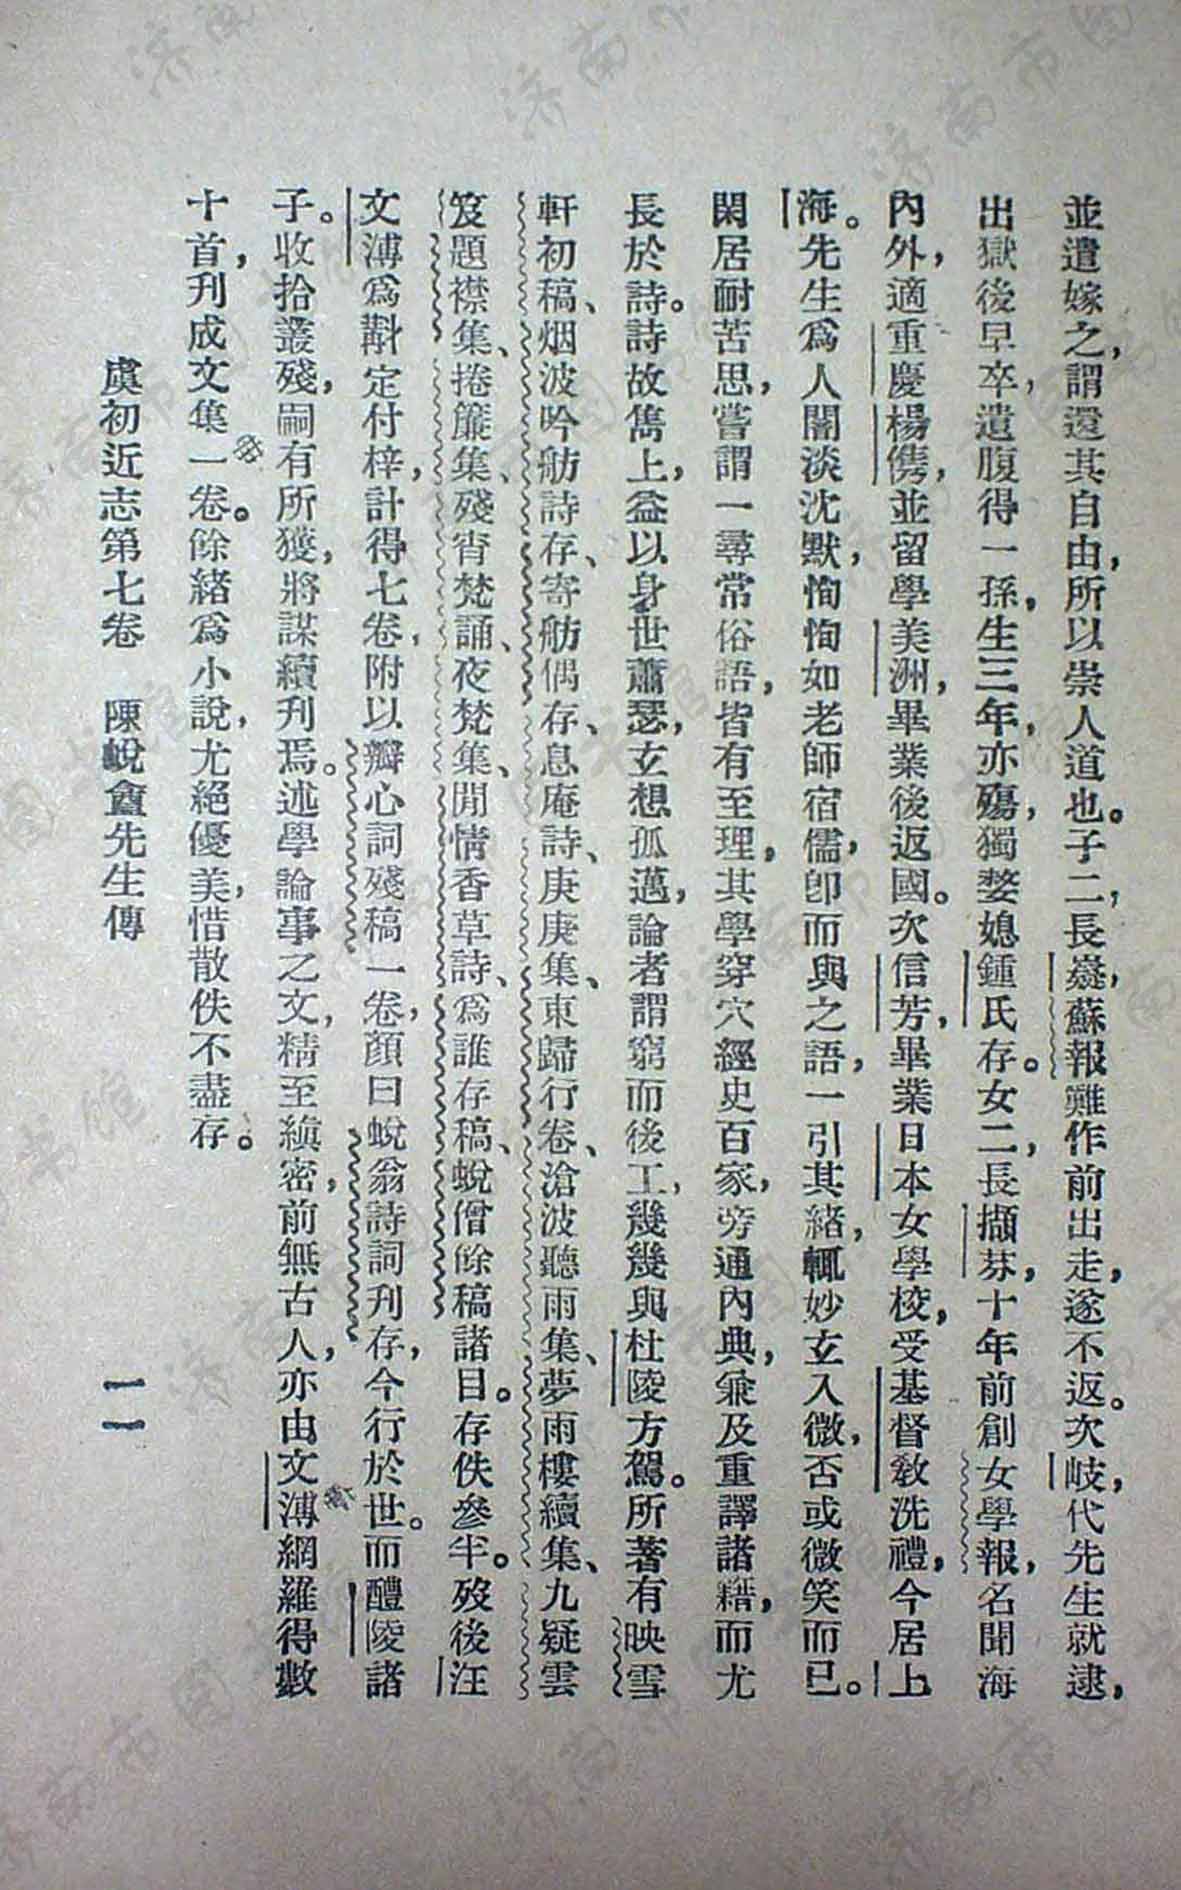 並遣嫁之，謂還其自由，所以崇人道也。子二，長嶷，蘇報難作前出走，遂不返。次岐，代先生就逮，
出獄後早卒，遺腹得一孫，生三年，亦殤，獨嫠媳鍾氏存。女二，長擷芬，十年前創女學報，名聞海
內外，適重慶楊儁，並留學美洲，畢業後返國。次信芳，畢業日本女學校，受基督教洗禮，今居上
海。先生爲人闇淡沈默，恂恂如老師宿儒，卽而與之語，一引其緒，輒妙玄入微，否或微笑而已。
閑居耐苦思，嘗謂一尋常俗語，皆有至理，其學穿穴經史百家，旁通內典，兼及重譯諸籍，而尤
長於詩。詩故雋上，益以身世蕭瑟，玄想孤邁，論者謂窮而後工，幾幾與杜陵方駕。所著有映雪
軒初稿、烟波吟舫詩存、寄舫偶存、息庵詩、庚庚集、東歸行卷、滄波聽雨集、夢雨樓續集、九疑雲
笈題襟集、捲簾集、殘宵梵誦、夜梵集、閒情香草詩、爲誰存稿、蛻僧餘稿諸目。存佚參半。歿後汪
文溥爲斠定付梓，計得七卷，附以瓣心詞殘稿一卷，顏曰蛻翁詩詞刊存，今行於世。而醴陵諸
子。收拾叢殘，嗣有所獲，將謀續刊焉。述學論事之文，精至縝密，前無古人，亦由文溥網羅得數
十首，刊成文集一卷。餘緒爲小說，尤絕優美，惜散佚不盡存。
虞初近志第七卷　陳蛻盦先生傳　一一